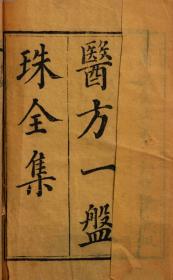 醫方一盤
珠全集